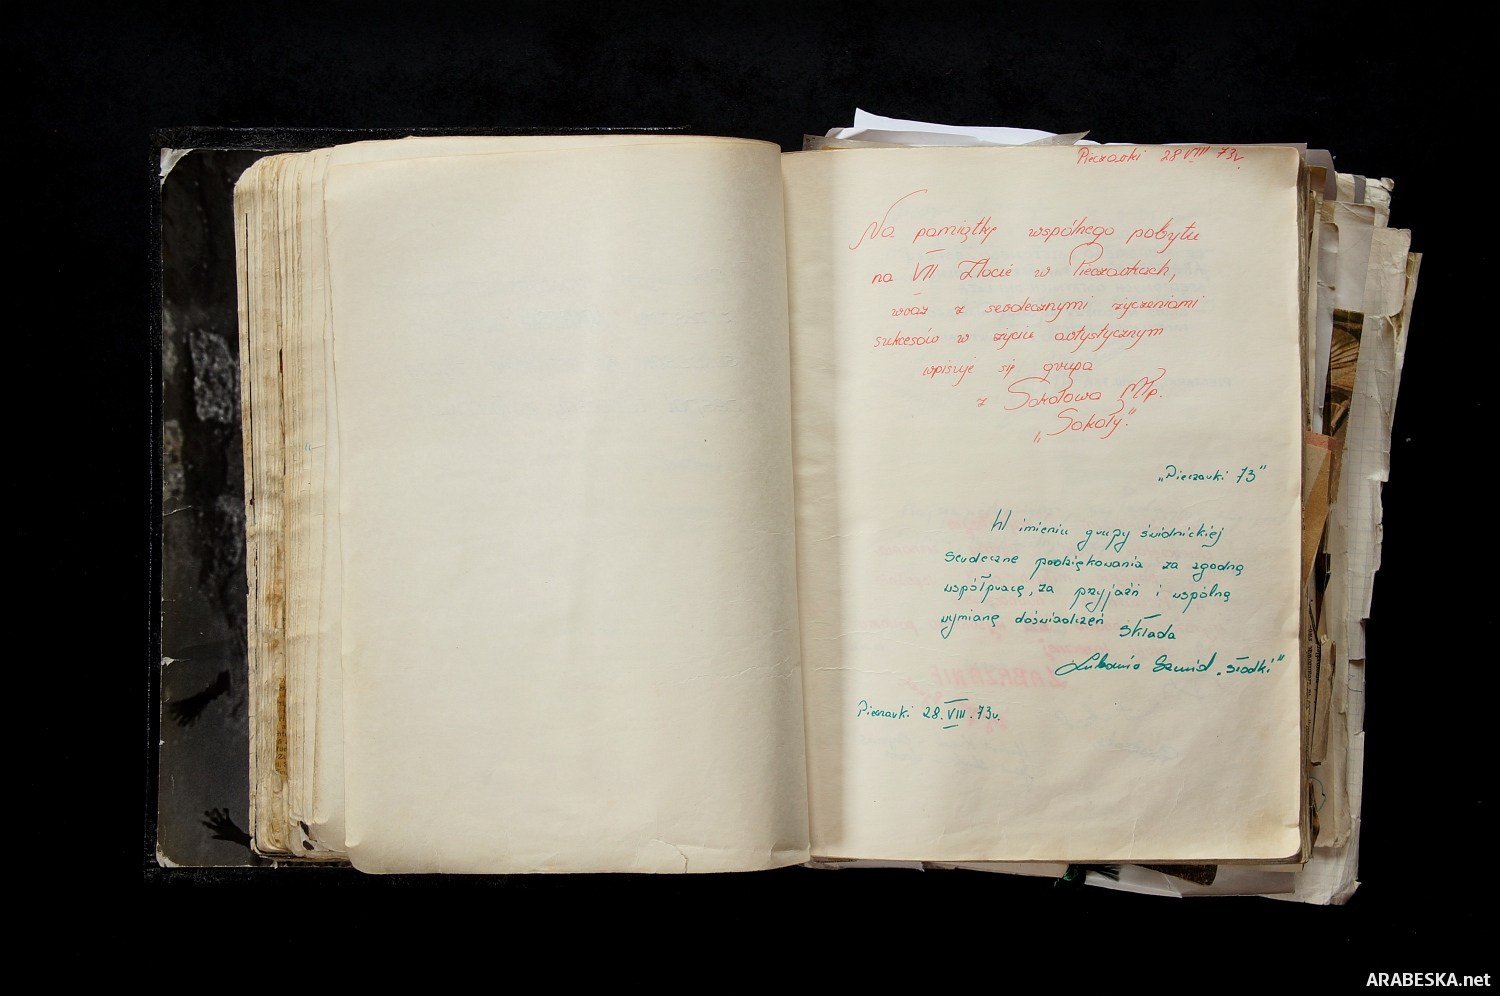 Pieczarki 28 VIII 73r
Na pamiątkę wspólnego pobytu
na VII Zlocie w Pieczarkach,
wraz z serdecznymi życzeniami
sukcesów w życiu artystycznym
wpisuje się grupa
z Sokołowa Młp.
„Sokoły."
„Pieczarki 73"
W imieniu grupy świdnickiej
serdeczne podziękowania za zgodną
współpracę, za przyjaźń i wspólną
wymianę doświadczeń
składa
„Słodki"
Pieczarki 28.VIII.73r.
ARABESKA.net